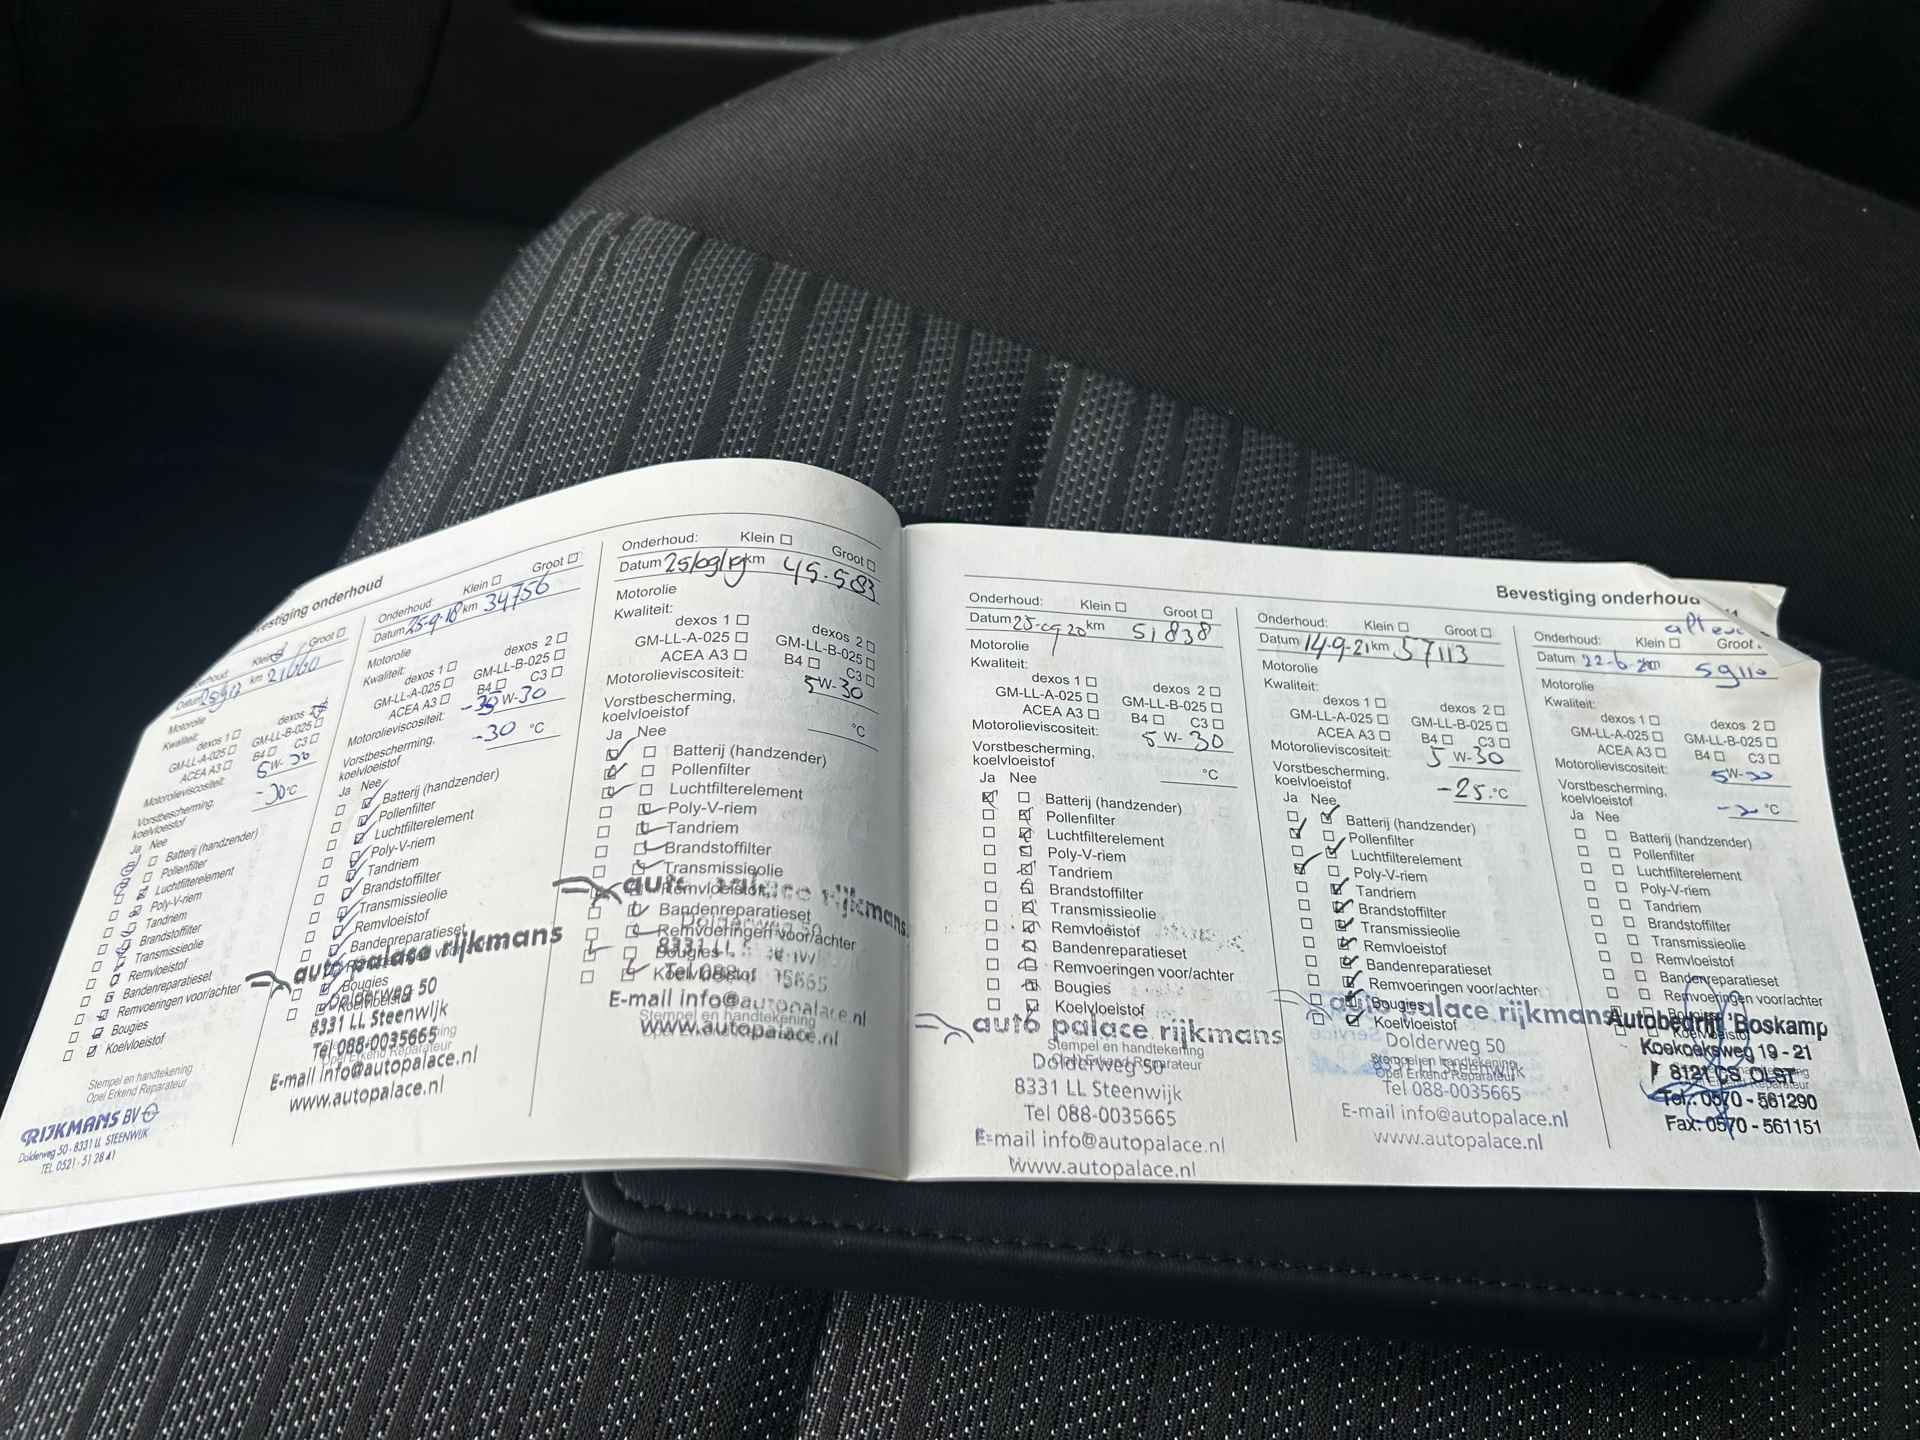 Bevestiging onderhoud
Klein Groot
km 21660
Motorolie
Kwaliteit:
dexos 1 dexos 2
GM-LL-A-025 GM-LL-B-025
ACEA A3 B4 C3
Motorolieviscositeit: 5 W- 30
Vorstbescherming,
koelvloeistof -30 °C
Ja Nee
Batterij (handzender)
Pollenfilter
Luchtfilterelement
Poly-V-riem
Tandriem
Brandstoffilter
Transmissieolie
Remvloeistof
Bandenreparatieset
Remvoeringen voor/achter
Bougies
Koelvloeistof
Stempel en handtekening
Opel Erkend Reparateur
RIJKMANS BV
Dolderweg 50 - 8331 LL STEENWIJK
TEL. 0521 - 51 28 41
Onderhoud: Klein Groot
Datum 25-9-18 km 34756
Motorolie
Kwaliteit:
dexos 1 dexos 2
GM-LL-A-025 GM-LL-B-025
ACEA A3 B4 C3
Motorolieviscositeit: W- 30
Vorstbescherming,
koelvloeistof -30 °C
Ja Nee
Batterij (handzender)
Pollenfilter
Luchtfilterelement
Poly-V-riem
Tandriem
Brandstoffilter
Transmissieolie
Remvloeistof
Bandenreparatieset
Bougies
auto palace rijkmans
Dolderweg 50
8331 LL Steenwijk
Tel 088-0035665
Opel Erkend Reparateur
E-mail info@autopalace.nl
www.autopalace.nl
Onderhoud: Klein Groot
Datum 25/09/19 km 45.583
Motorolie
Kwaliteit:
dexos 1 dexos 2
GM-LL-A-025 GM-LL-B-025
ACEA A3 B4 C3
Motorolieviscositeit: 5 W- 30
Vorstbescherming,
koelvloeistof °C
Ja Nee
Batterij (handzender)
Pollenfilter
Luchtfilterelement
Poly-V-riem
Tandriem
Brandstoffilter
Transmissieolie
Remvloeistof
auto palace rijkmans
Bandenreparatieset
Dolderweg 50
Remvoeringen voor/achter
8331 LL
Bougies
Koelvloeistof
Tel 088-
E-mail info@autopalace.nl
Stempel en handtekening
Opel Erkend Reparateur
www.autopalace.nl
Bevestiging onderhoud
Onderhoud: Klein Groot
Datum 25-09 20 km 51838
Motorolie
Kwaliteit:
dexos 1 dexos 2
GM-LL-A-025 GM-LL-B-025
ACEA A3 B4 C3
Motorolieviscositeit: 5 W- 30
Vorstbescherming,
koelvloeistof °C
Ja Nee
Batterij (handzender)
Pollenfilter
Luchtfilterelement
Poly-V-riem
Tandriem
Brandstoffilter
Transmissieolie
Remvloeistof
Bandenreparatieset
Remvoeringen voor/achter
Bougies
Koelvloeistof
auto palace rijkmans
Stempel en handtekening
Opel Erkend Reparateur
Dolderweg 50
8331 LL Steenwijk
Tel 088-0035665
E-mail info@autopalace.nl
www.autopalace.nl
Onderhoud: Klein Groot
Datum 14-9-21 km 57113
Motorolie
Kwaliteit:
dexos 1 dexos 2
GM-LL-A-025 GM-LL-B-025
ACEA A3 B4 C3
Motorolieviscositeit: 5 W- 30
Vorstbescherming,
koelvloeistof -25 °C
Ja Nee
Batterij (handzender)
Pollenfilter
Luchtfilterelement
Poly-V-riem
Tandriem
Brandstoffilter
Transmissieolie
Remvloeistof
Bandenreparatieset
Remvoeringen voor/achter
Bougies
auto palace rijkmans
Koelvloeistof
Dolderweg 50
Stempel en handtekening
8331 LL Steenwijk
Opel Erkend Reparateur
Tel 088-0035665
E-mail info@autopalace.nl
www.autopalace.nl
Onderhoud: Klein Groot
Datum 22-6- km 59110
Motorolie
Kwaliteit:
dexos 1 dexos 2
GM-LL-A-025 GM-LL-B-025
ACEA A3 B4 C3
Motorolieviscositeit: 5 W- 30
Vorstbescherming,
koelvloeistof °C
Ja Nee
Batterij (handzender)
Pollenfilter
Luchtfilterelement
Poly-V-riem
Tandriem
Brandstoffilter
Transmissieolie
Remvloeistof
Bandenreparatieset
Remvoeringen voor/achter
Bougies
Autobedrijf 'Boskamp
Koelvloeistof
Koekoeksweg 19 - 21
8121 CS OLST
Tel.: 0570 - 561290
Fax: 0570 - 561151